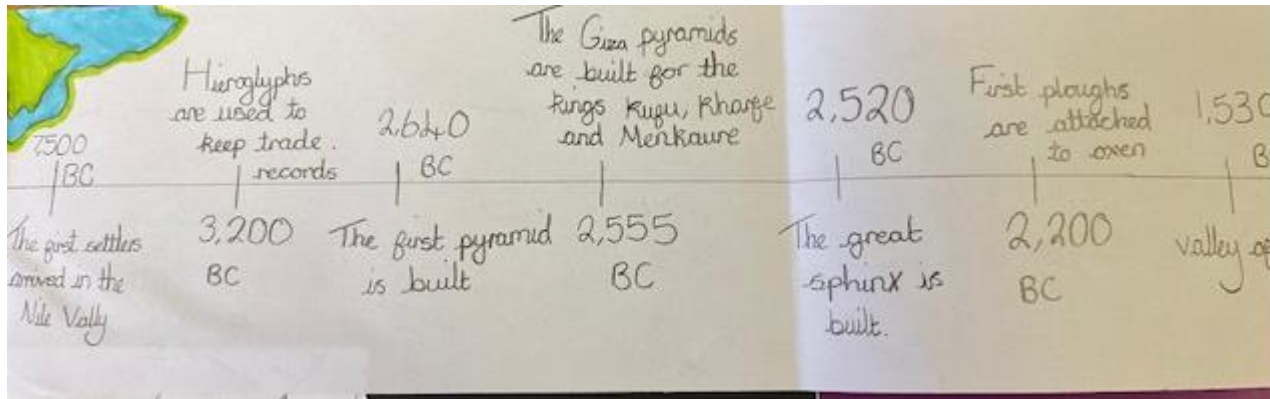 7500
BC
The first settlers
arrived in the
Nile Vally
Hieroglyphs
are used to
keep trade.
records
3,200
BC
2,640
BC
The first pyramid
is built
The Giza pyramids
are built for the
kings Kufu, Kharfe
and Menkaure
2,555
BC
2,520
BC
The great
sphinx is
built.
First ploughs
are attached
to oxen
2,200
BC
1,530
B
valley of